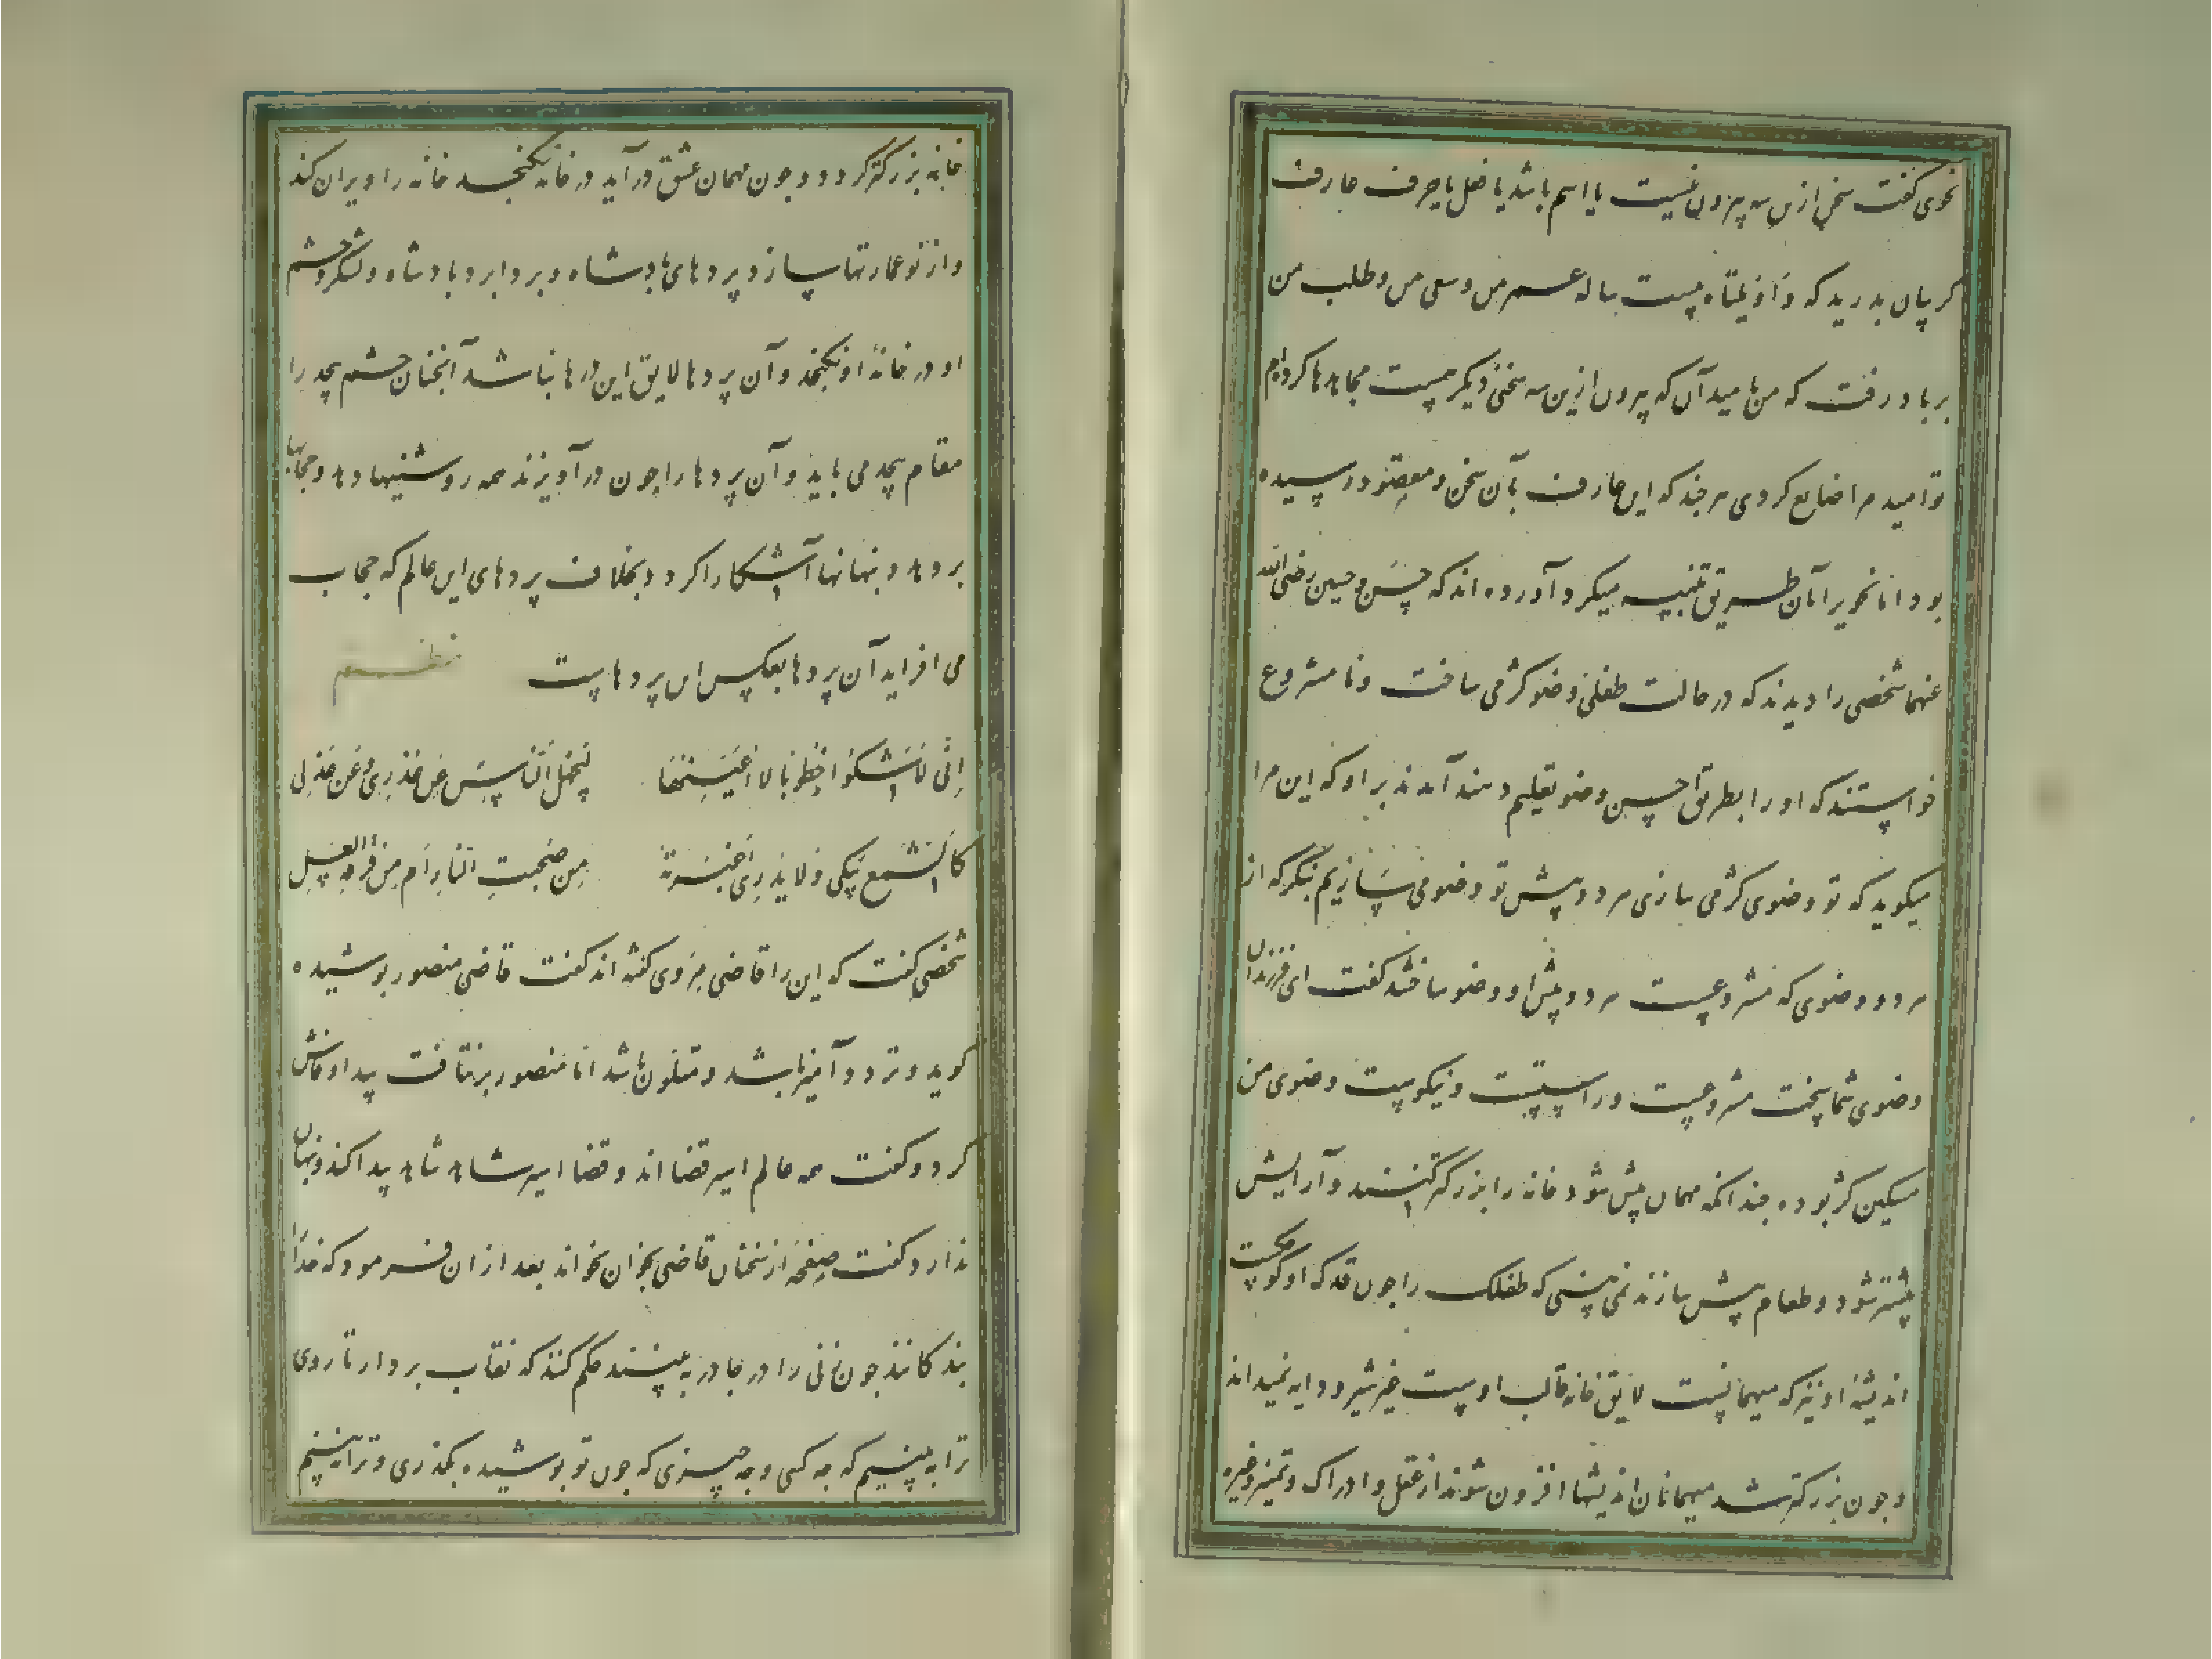 نحوی گفت سخن ازین سه بیرون نیست یا اسم باشد یا فعل یا حرف عارف
گریبان بدرید که وا ویلتاه بیست ساله عمر من و سعی من و طلب من
بر باد رفت که من بامید آن که بیرون ازین سه سخنی دیگر هست مجاهدها کرده‌ام
تو امید مرا ضایع کردی هر چند که این عارف بآن سخن و مقصود رسیده
بود اما نحوی را بآن طریق تنبیه میکرد آورده اند که حسن و حسین رضی الله
عنهما شخصی را دیدند که در حالت طفلی وضو کژ می ساخت و نا مشروع
خواستند که او را بطریق احسن وضو تعلیم دهند آمدند بر او که این مرا
میگوید که تو وضوی کژ می سازی هر دو پیش تو وضو می سازیم بنگر که از
هر دو وضوی که مشروعست هر دو پیش او وضو ساختند گفت ای فرزندان
وضوی شما سخت مشروعست و راستست و نیکوست وضوی من
مسکین کژ بوده چندانکه مهمان بیش شود خانه را بزرگتر کنند و آرایش
بیشتر شود و طعام بیش سازند نمی بینی که طفلک را چون قدک او کوچکست
اندیشهٔ او نیز که مهمانست لایق خانه قالب اوست غیر شیر و دایه نمیداند
و چون بزرگتر شد مهمانان اندیشها افزون شوند از عقل و ادراک و تمییز و غیره
خانه بزرگتر گردد و چون مهمان عشق در آید در خانه نگنجد خانه را ویران کند
و از نو عمارتها سازد پردهای پادشاه و بردابرد پادشاه و لشکر و حشم
او در خانهٔ او نگنجد و آن پردها لایق این درها نباشد آنچنان حشم بیحد را
مقام بیحد می باید و آن پردها را چون در آویزند همه روشنیها دهد و حجابها
بردهد و پنهانها آشکارا گردد بخلاف پردهای این عالم که حجاب
می افزاید آن پردها بعکس این پردهاست نظم
اِنّی لَاَشْکُو خُطُوبًا لا اُعَیِّنُهَا لِیَجْهَلَ النَّاسُ عَن عُذرِی وَ عَن عَذَلِی
کَالشَّمعِ یَبْکِی وَلا یُدْرَی أعَبْرَتُهُ مِن صُحبَةِ النَّارِ اَم مِن فُرْقَةِ العَسَلِ
شخصی گفت که این را قاضی هِرَوی گفته اند گفت قاضی منصور پوشیده
گوید و تردد آمیز باشد و متلون باشد اما منصور بر نتافت پیدا و فاش
کرد و گفت همه عالم اسیر قضا اند و قضا اسیر شاهد شاهد پیدا کند و پنهان
ندارد گفت صفحهٔ از سخنان قاضی بخوان بخواند بعد از ان فرمود که خدا را
بندگانند چون زنی را در چادر به بینند حکم کنند که نقاب بردار تا روی
ترا به بینیم که چه کسی و چه چیزی که چون تو پوشیده بگذری و ترا نبینیم